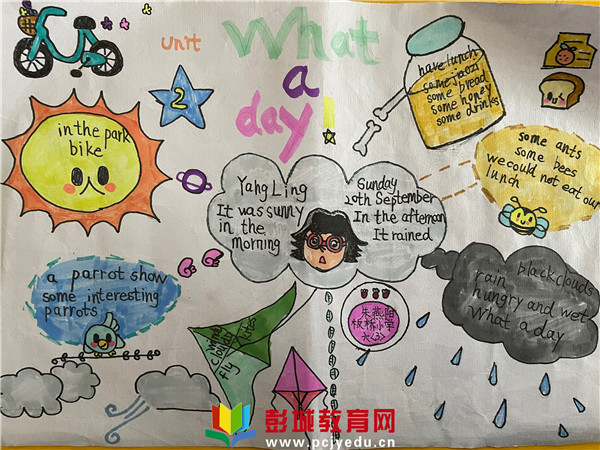 unit
2
What
a
day!
in the park
bike
have lunch
some jiaozi
some bread
some honey
some drinks
some ants
some bees
we could not eat our
lunch
Yang Ling
It was sunny
in the
morning
Sunday
20th September
In the afternoon
It rained
a parrot show
some interesting
parrots
windy
cloudy
fly
kites
black clouds
rain
hungry and wet
What a day
彭城教育网
www.pcjyedu.cn